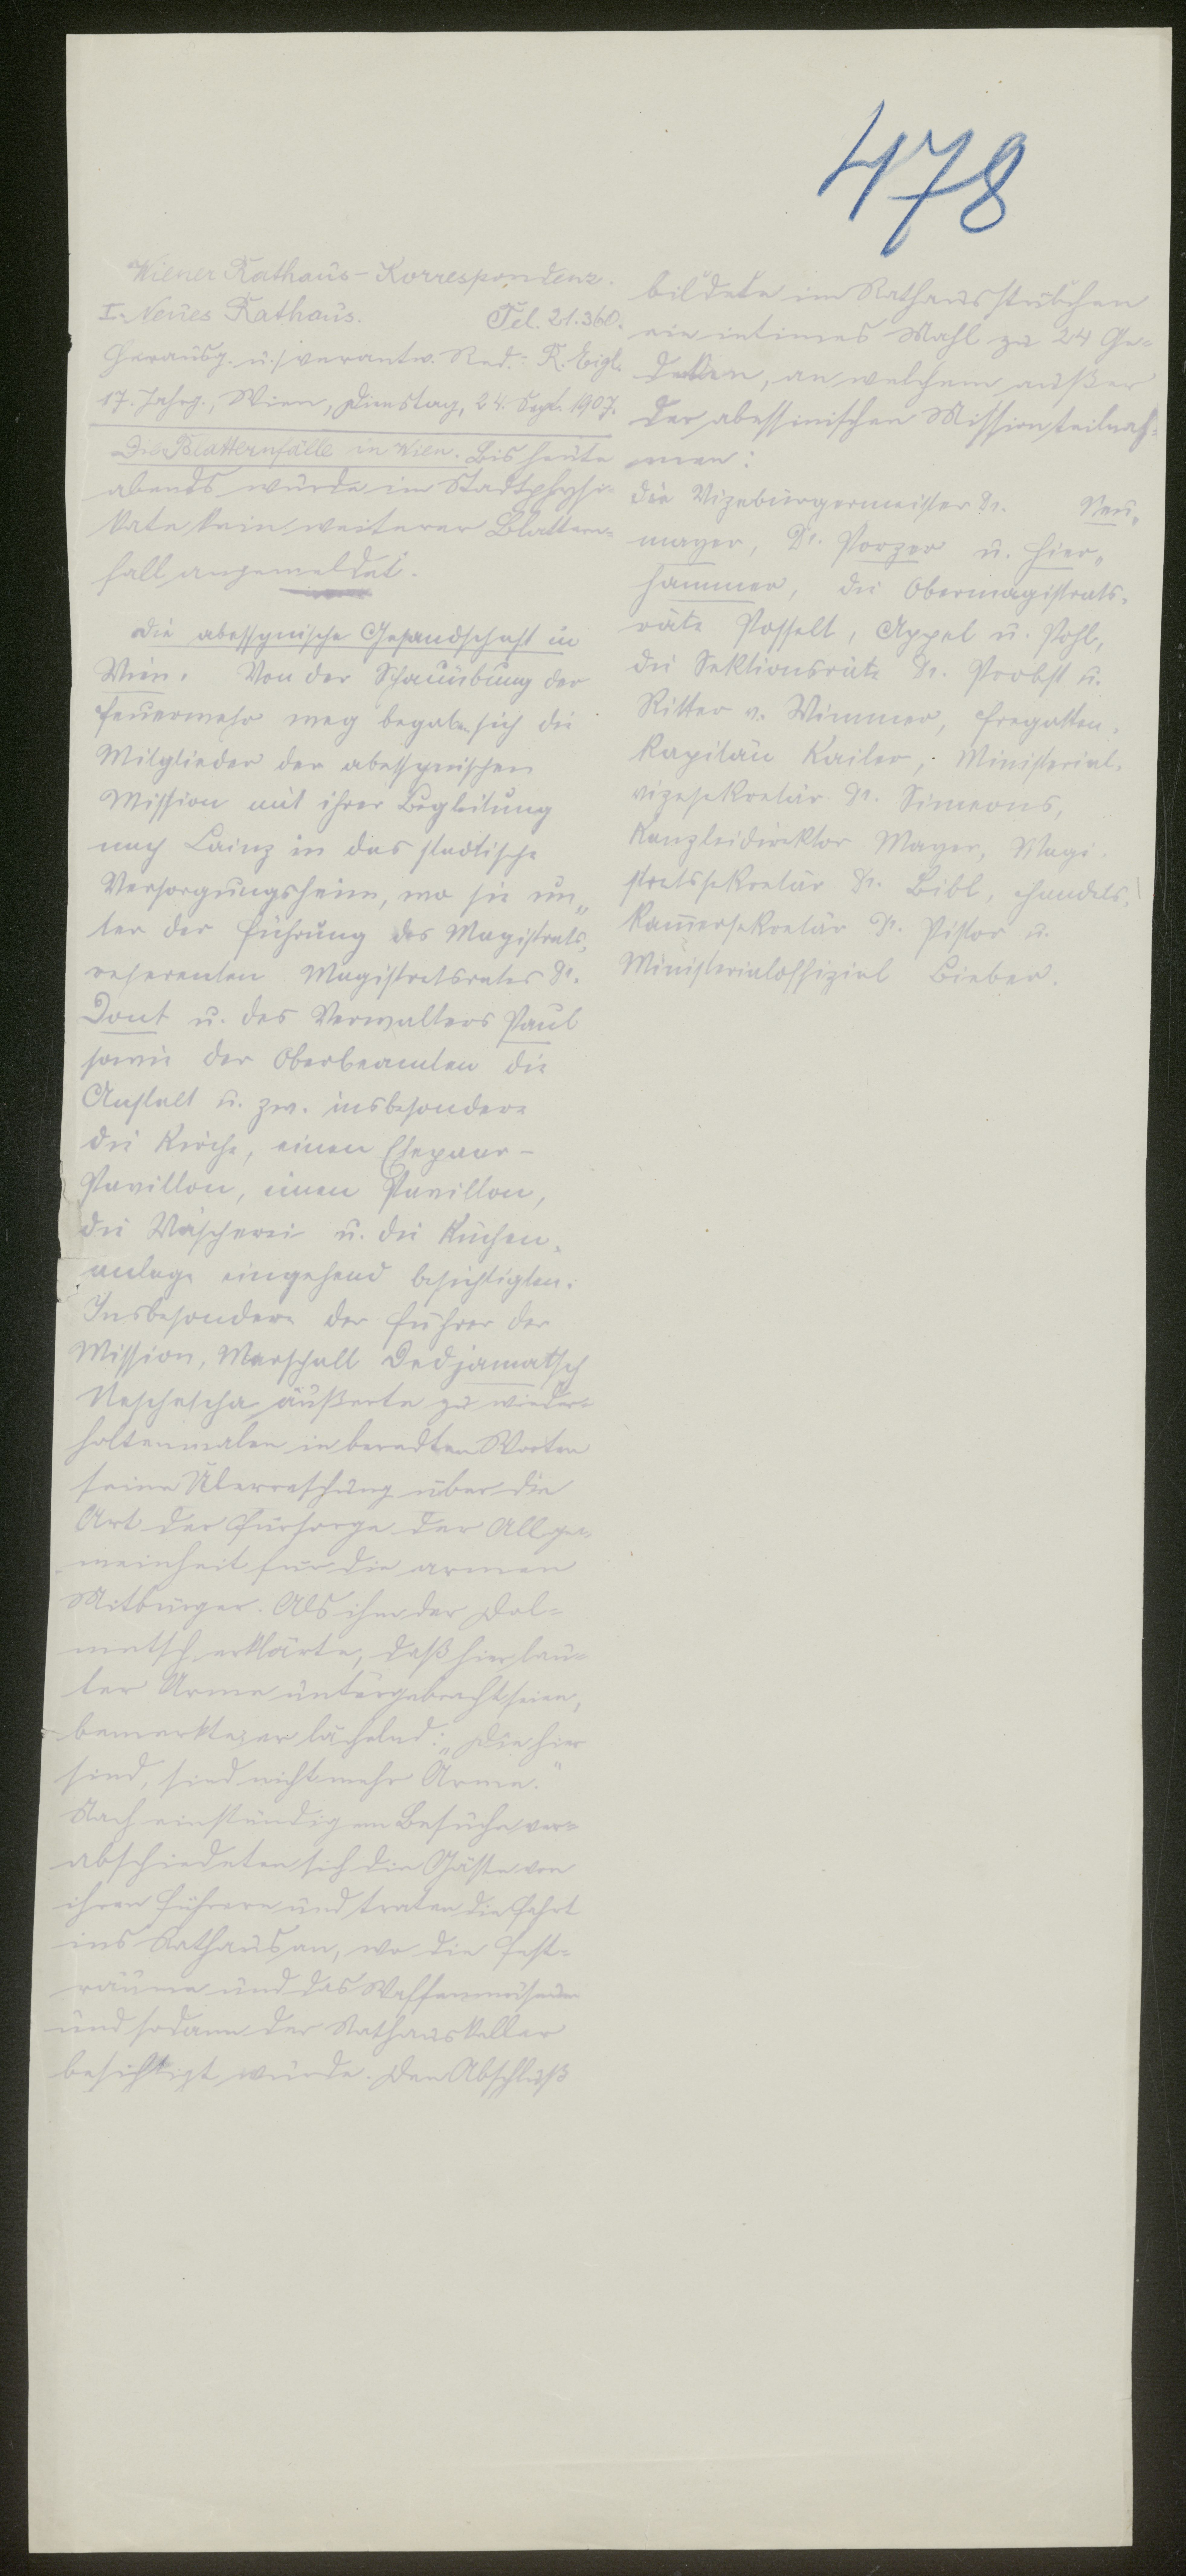 478
Wiener Rathaus-Korrespondenz.
I. Neues Rathaus. Tel. 21.360.
Herausg. u. verantw. Red.: R. Eigl.
17. Jahrg., Wien, Dienstag, 24. Sept. 1907.
Die Blatternfälle in Wien. Bis heute
abends wurde im Stadtphysi-
kate kein weiterer Blattern-
fall angemeldet.
Die abessynische Gesandschaft in
Wien. Von der Schauübung der
Feuerwehr weg begaben sich die
Mitglieder der abessynischen
Mission mit ihrer Begleitung
nach Lainz in das städtische
Versorgungsheim, wo sie un-
ter der Führung des Magistrats-
referenten Magistratsrates Dr.
Dont u. des Verwalters Paul
sowie der Oberbeamten die
Anstalt u. zw. insbesondere
die Kirche, einen Ehepaar-
Pavillon, einen Pavillon,
die Wäscherei u. die Küchen-
anlage eingehend besichtigten.
Insbesondere der Führer der
Mission, Marschall Dedjamatsch
Neschescha äußerte zu wieder-
holtenmalen in beredten Worten
seine Überraschung über die
Art der Fürsorge der Allge-
meinheit für die armen
Mitbürger. Als ihm der Dol-
metsch erklärte, daß hier lau-
ter Arme untergebracht seien,
bemerkte er lächelnd: „Die hier
sind, sind nicht mehr Arme."
Nach einstündigem Besuche ver-
abschiedeten sich die Gäste von
ihren Führern und traten die Fahrt
ins Rathaus an, wo die Fest-
räume und das Waffenmuseum
und sodann der Rathauskeller
besichtigt wurde. Den Abschluß
bildete im Rathausstübchen
ein intimes Mahl zu 24 Ge-
decken, an welchem außer
der abessinischen Mission teilnah-
men:
die Vizebürgermeister Dr. Neu-
mayer, Dr. Porzer u. Hier-
hammer, die Obermagistrats-
räte Posselt, Appel u. Pohl,
die Sektionsräte Dr. Probst u.
Ritter v. Wimmer, Fregatten-
kapitän Kailer, Ministerial-
vizesekretär Dr. Simeons,
Kanzleidirektor Mayer, Magi-
stratssekretär Dr. Bibl, Handels-
kammersekretär Dr. Pistor u.
Ministerialoffizial Bieber.